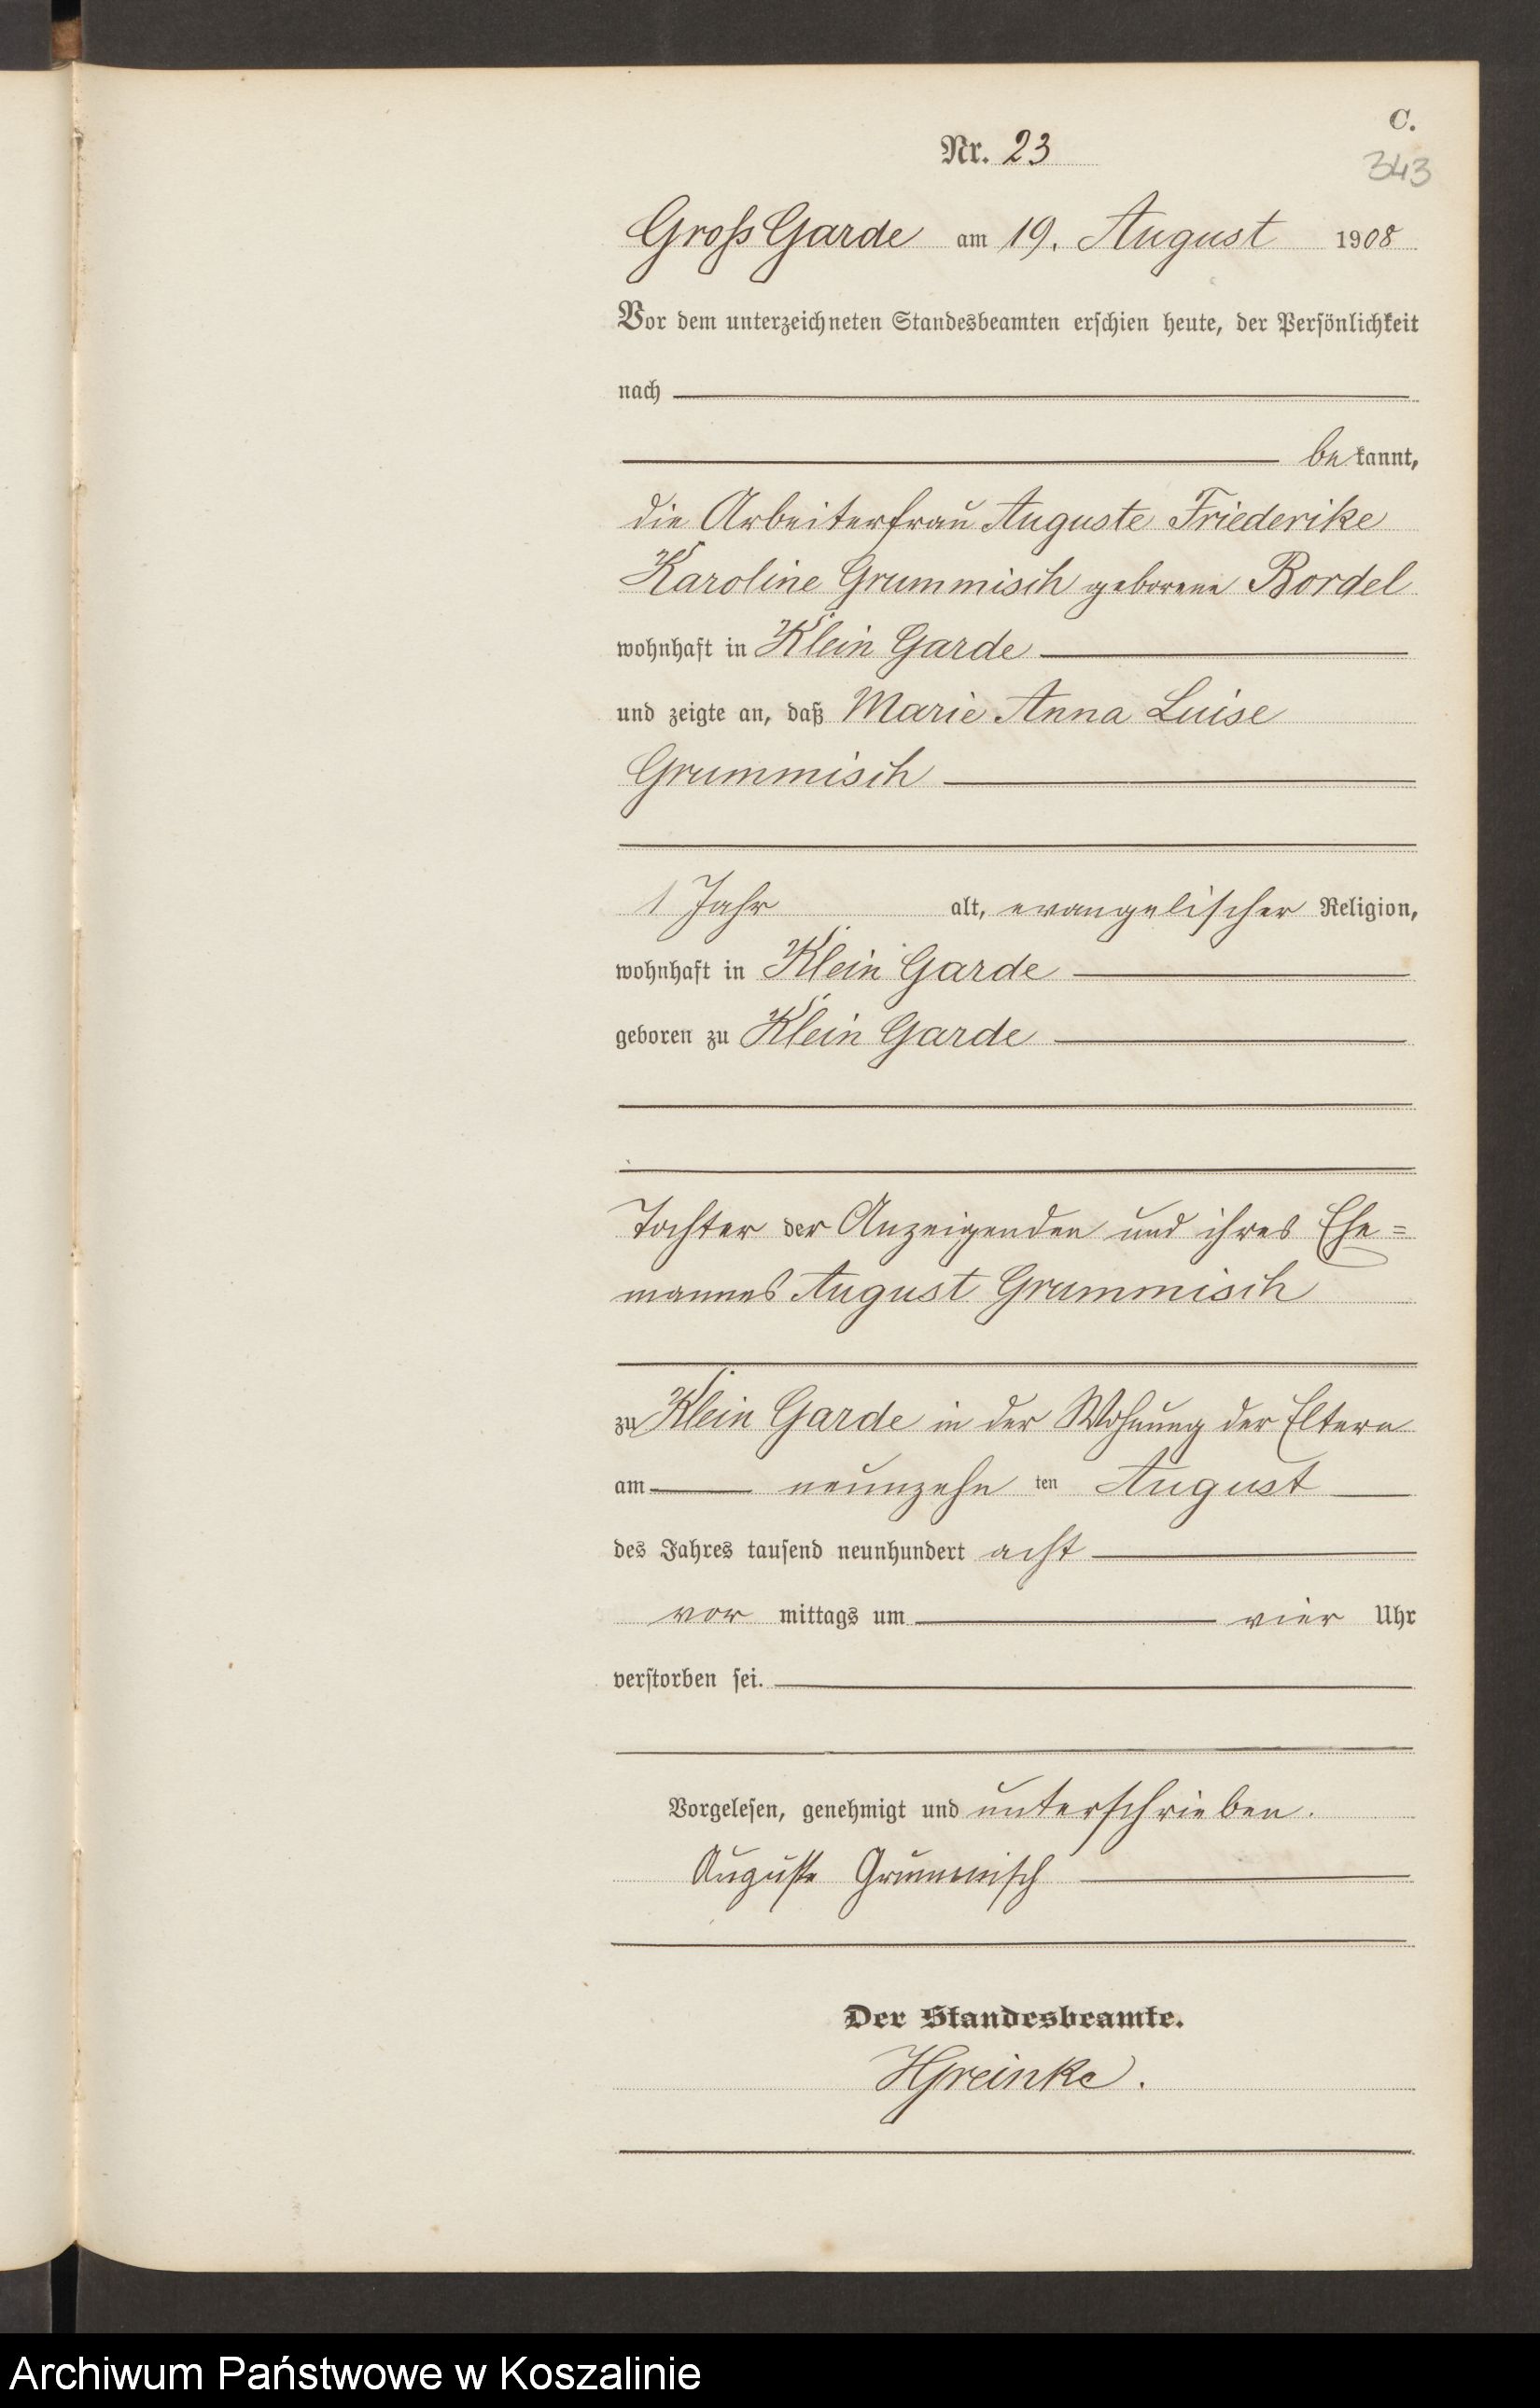 C.
Nr. 23
343
Groß Garde am 19. August 1908
Vor dem unterzeichneten Standesbeamten erschien heute, der Persönlichkeit
nach
be kannt,
die Arbeiterfrau Auguste Friederike
Karoline Grummisch geborene Bordel
wohnhaft in Klein Garde
und zeigte an, daß Marie Anna Luise
Grummisch
1 Jahr alt, evangelischer Religion,
wohnhaft in Klein Garde
geboren zu Klein Garde
Tochter der Anzeigenden und ihres Ehe=
mannes August Grummisch
zu Klein Garde in der Wohnung der Eltern
am neunzehn ten August
des Jahres tausend neunhundert acht
vor mittags um vier Uhr
verstorben sei.
Vorgelesen, genehmigt und unterschrieben.
Auguste Grummisch
Der Standesbeamte.
HGreinke.
Archiwum Państwowe w Koszalinie